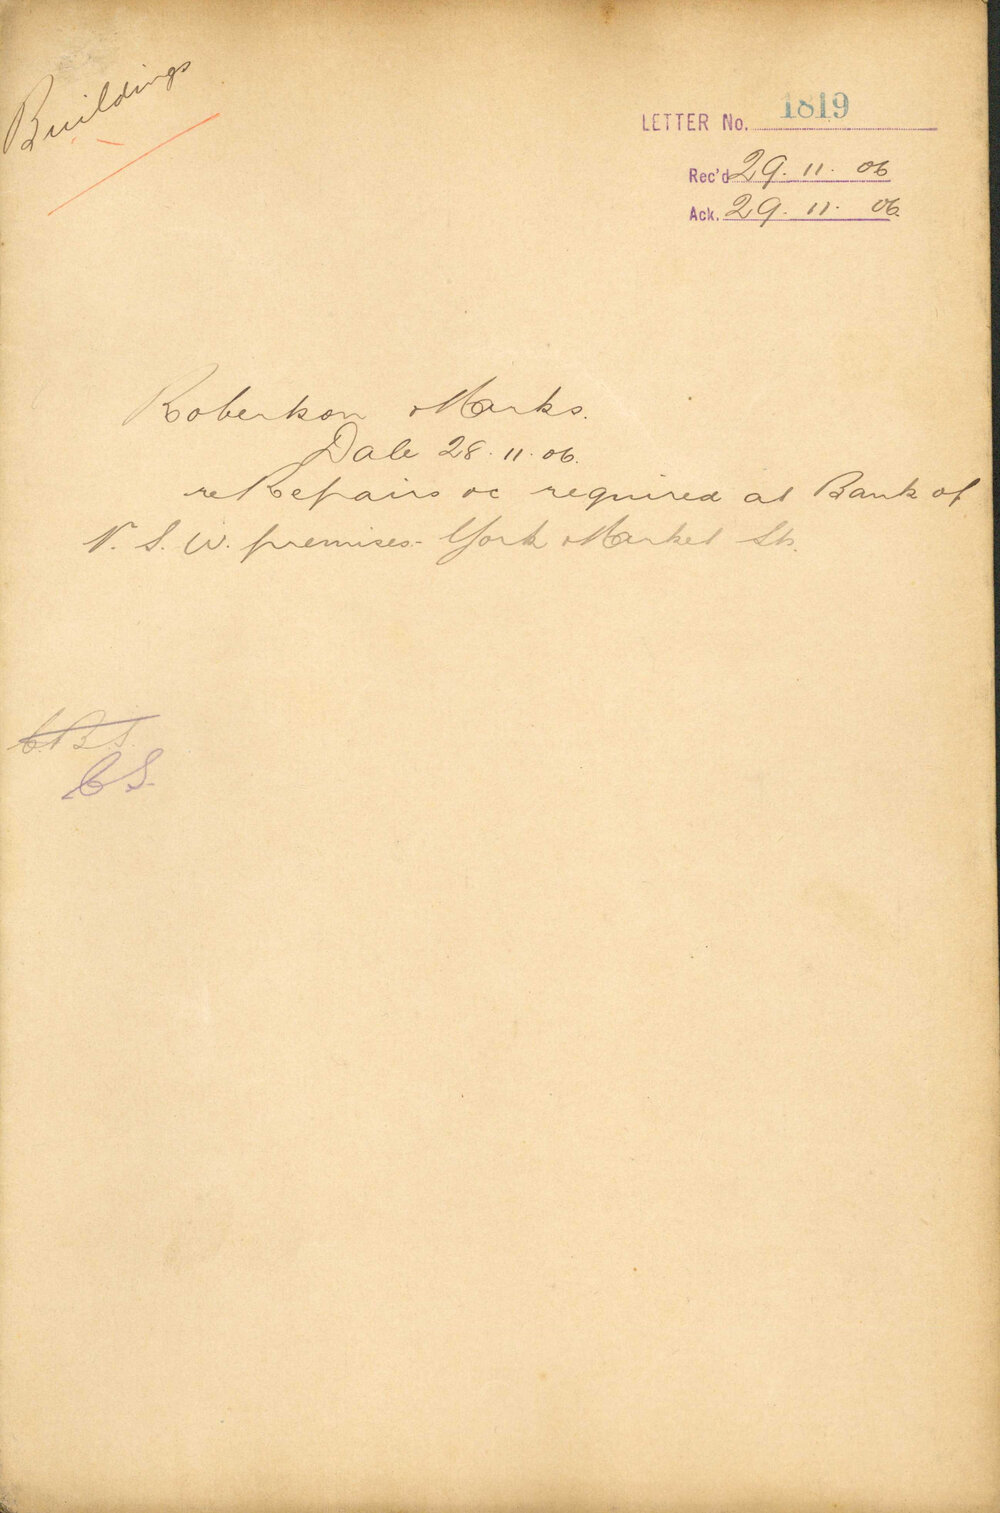 Buildings
LETTER No. 1819
Rec'd 29. 11. 06
Ack. 29. 11. 06.
Robertson Marks.
Date 28. 11. 06.
re Repairs &c required at Bank of
N. S. W. premises - York Market Sts.
C.B.S.
C.S.